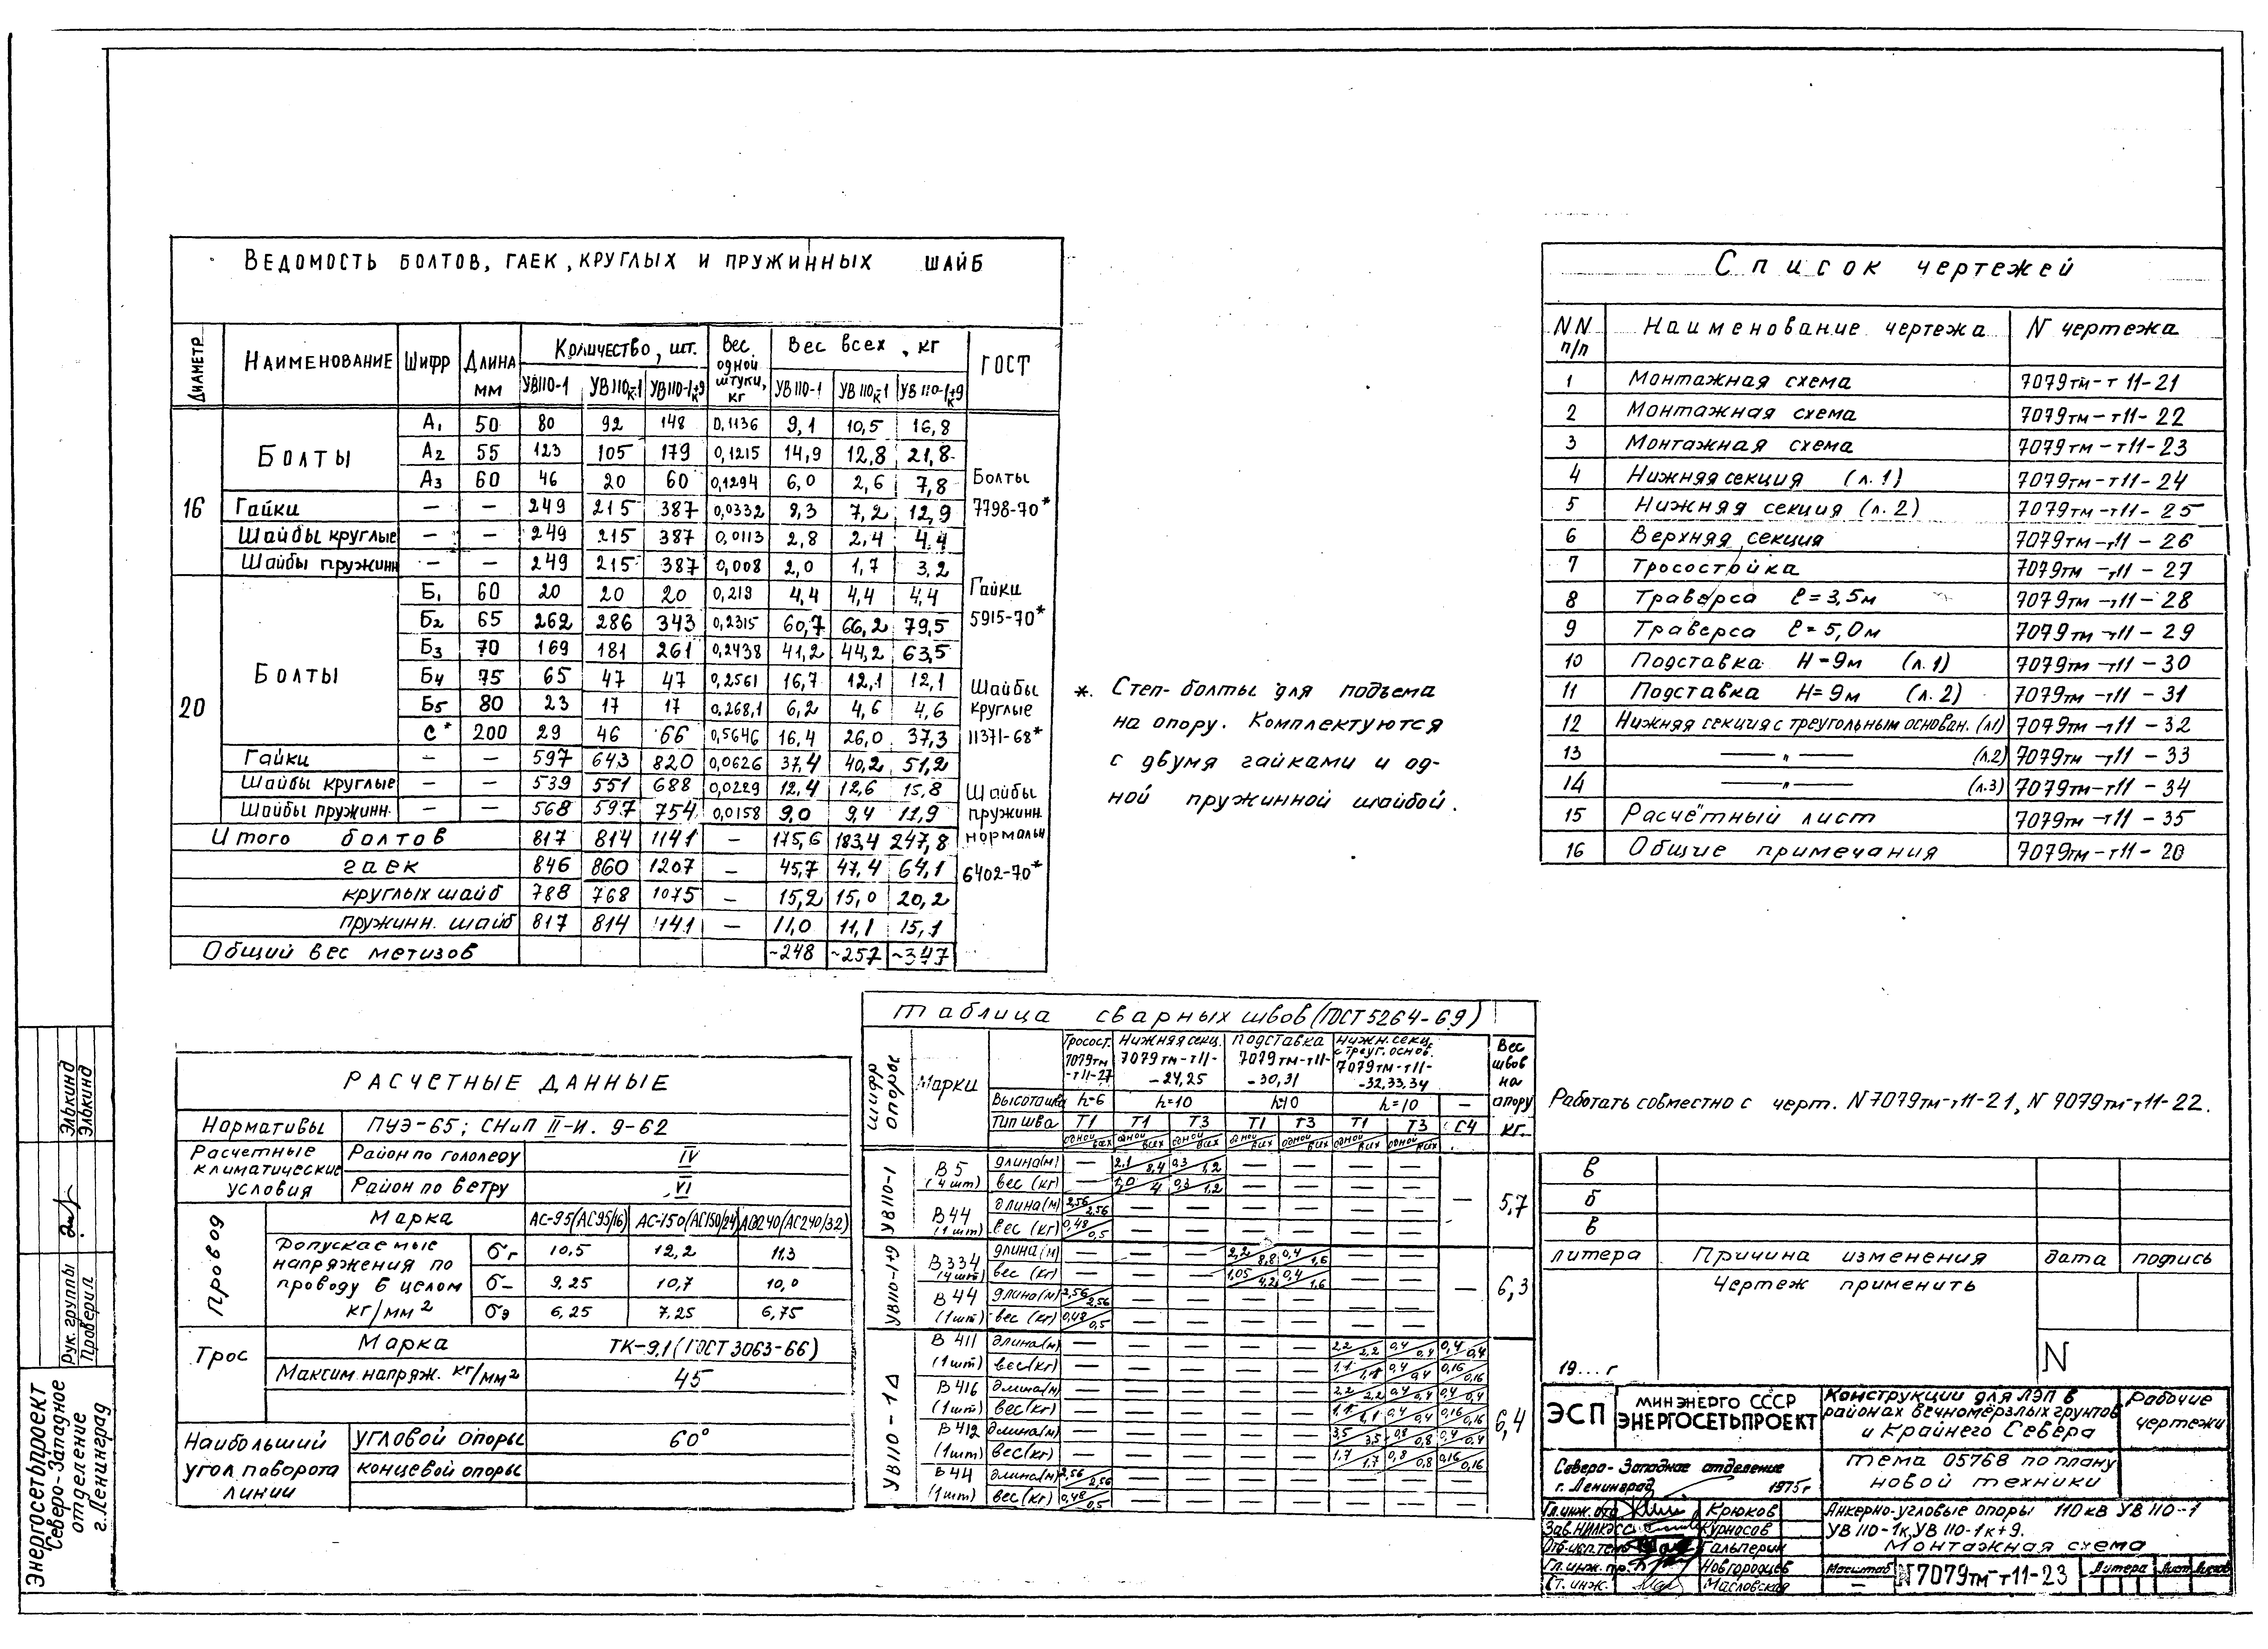 Ведомость болтов, гаек, круглых и пружинных шайб
Диаметр Наименование Шифр Длина мм Количество, шт. Вес одной штуки, кг Вес всех, кг ГОСТ
УВ110-1 УВ110-1к УВ110-1к+9 УВ110-1 УВ110-1к УВ110-1к+9
16 Болты А1 50 80 92 148 0,1136 9,1 10,5 16,8
А2 55 123 105 179 0,1215 14,9 12,8 21,8
А3 60 46 20 60 0,1294 6,0 2,6 7,8
Гайки — — 249 215 387 0,0332 8,3 7,2 12,9
Шайбы круглые — — 249 215 387 0,0113 2,8 2,4 4,4
Шайбы пружинн — — 249 215 387 0,008 2,0 1,7 3,2
20 Болты Б1 60 20 20 20 0,219 4,4 4,4 4,4
Б2 65 262 286 343 0,2315 60,7 66,2 79,5
Б3 70 169 181 261 0,2438 41,2 44,2 63,5
Б4 75 65 47 47 0,2561 16,7 12,1 12,1
Б5 80 23 17 17 0,268,1 6,2 4,6 4,6
С* 200 29 46 66 0,5646 16,4 26,0 37,3
Гайки — — 597 643 820 0,0626 37,4 40,2 51,2
Шайбы круглые — — 539 551 688 0,0229 12,4 12,6 15,8
Шайбы пружинн. — — 568 597 754 0,0158 9,0 9,4 11,9
Итого болтов 817 814 1141 — 175,6 183,4 247,8
гаек 846 860 1207 — 45,7 47,4 64,1
круглых шайб 788 768 1075 — 15,2 15,0 20,2
пружинн. шайб 817 814 1141 — 11,0 11,1 15,1
Общий вес метизов ~248 ~257 ~347
Болты
7798-70*
Гайки
5915-70*
Шайбы
круглые
11371-68*
Шайбы
пружинн.
нормальн
6402-70*
*. Степ-болты для подъема
на опору. Комплектуются
с двумя гайками и од-
ной пружинной шайбой.
Список чертежей
NN п/п Наименование чертежа N чертежа
1 Монтажная схема 7079тм-т11-21
2 Монтажная схема 7079тм-т11-22
3 Монтажная схема 7079тм-т11-23
4 Нижняя секция (л.1) 7079тм-т11-24
5 Нижняя секция (л.2) 7079тм-т11-25
6 Верхняя секция 7079тм-т11-26
7 Тросостойка 7079тм-т11-27
8 Траверса ℓ=3,5м 7079тм-т11-28
9 Траверса ℓ=5,0м 7079тм-т11-29
10 Подставка Н=9м (л.1) 7079тм-т11-30
11 Подставка Н=9м (л.2) 7079тм-т11-31
12 Нижняя секция с треугольным основан. (л1) 7079тм-т11-32
13 —— „ —— (л.2) 7079тм-т11-33
14 —— „ —— (л.3) 7079тм-т11-34
15 Расчётный лист 7079тм-т11-35
16 Общие примечания 7079тм-т11-20
Расчетные данные
Нормативы ПУЭ-65; СНиП II-И. 9-62
Расчетные климатические условия Район по гололеду IV
Район по ветру VI
Провод Марка АС-95(АС95/16) АС-150(АС150/24) АС240(АС240/32)
Допускаемые напряжения по проводу в целом кг/мм2 σг 10,5 12,2 11,3
σ– 9,25 10,7 10,0
σэ 6,25 7,25 6,75
Трос Марка ТК-9,1 (ГОСТ 3063-66)
Максим. напряж. кг/мм2 45
Наибольший угол поворота линии угловой опоры 60°
концевой опоры
Таблица сварных швов (ГОСТ 5264-69)
Шифр опоры Марки Тросост. 7079тм-т11-27 Нижняя секц. 7079тм-т11-24,25 Подставка 7079тм-т11-30,31 Нижн. секц. с треуг. основ. 7079тм-т11-32,33,34 Вес швов на опору кг.
Высота шва h=6 h=10 h=10 h=10 —
Тип шва Т1 Т1 Т3 Т1 Т3 Т1 Т3 С4
одной/всех одной/всех одной/всех одной/всех одной/всех одной/всех одной/всех
УВ110-1 В5 (4шт) длина(м) — 2,1/8,4 0,3/1,2 — — — —
вес (кг) — 1,0/4 0,3/1,2 — — — — — 5,7
В44 (1шт) длина(м) 2,56/2,56 — — — — — —
вес (кг) 0,48/0,5 — — — — — —
УВ110-1+9 В334 (4шт) длина(м) — — — 2,2/8,8 0,4/1,6 — —
вес (кг) — — — 1,05/4,2 0,4/1,6 — — — 6,3
В44 (1шт) длина(м) 2,56/2,56 — — — — — —
вес (кг) 0,48/0,5 — — — — — —
УВ110-1Δ В411 (1шт) длина(м) — — — — — 2,2/2,2 0,4/0,4 0,4/0,4
вес(кг) — — — — — 1,1/1,1 0,4/0,4 0,16/0,16
В416 (1шт) длина(м) — — — — — 2,2/2,2 0,4/0,4 0,4/0,4
вес(кг) — — — — — 1,1/1,1 0,4/0,4 0,16/0,16 6,4
В412 (1шт) длина(м) — — — — — 3,5/3,5 0,8/0,8 0,4/0,4
вес(кг) — — — — — 1,7/1,7 0,8/0,8 0,16/0,16
В44 (1шт) длина(м) 2,56/2,56 — — — — — — —
вес(кг) 0,48/0,5 — — — — — — —
Работать совместно с черт. N7079тм-т11-21, N7079тм-т11-22.
в
б
в
литера Причина изменения дата подпись
Чертеж применить
19....г
N
ЭСП
Минэнерго СССР
Энергосетьпроект
Конструкции для ЛЭП в
районах вечномёрзлых грунтов
и Крайнего Севера
Рабочие
чертежи
Северо-Западное отделение
г. Ленинград 1975г
тема 05768 по плану
новой техники
Гл.инж.отд Крюков
Зав.НИЛКЭС Курносов
Отв.исп.темы Гальперин
Гл.инж.пр. Новгородцев
Ст.инж. Масловская
Анкерно-угловые опоры 110кВ УВ110-1
УВ110-1к, УВ110-1к+9.
Монтажная схема
Масштаб —
N7079тм-т11-23
Литера Лист Листов
Энергосетьпроект
Северо-Западное
отделение
г. Ленинград
Рук. группы Элькинд
Проверил Элькинд